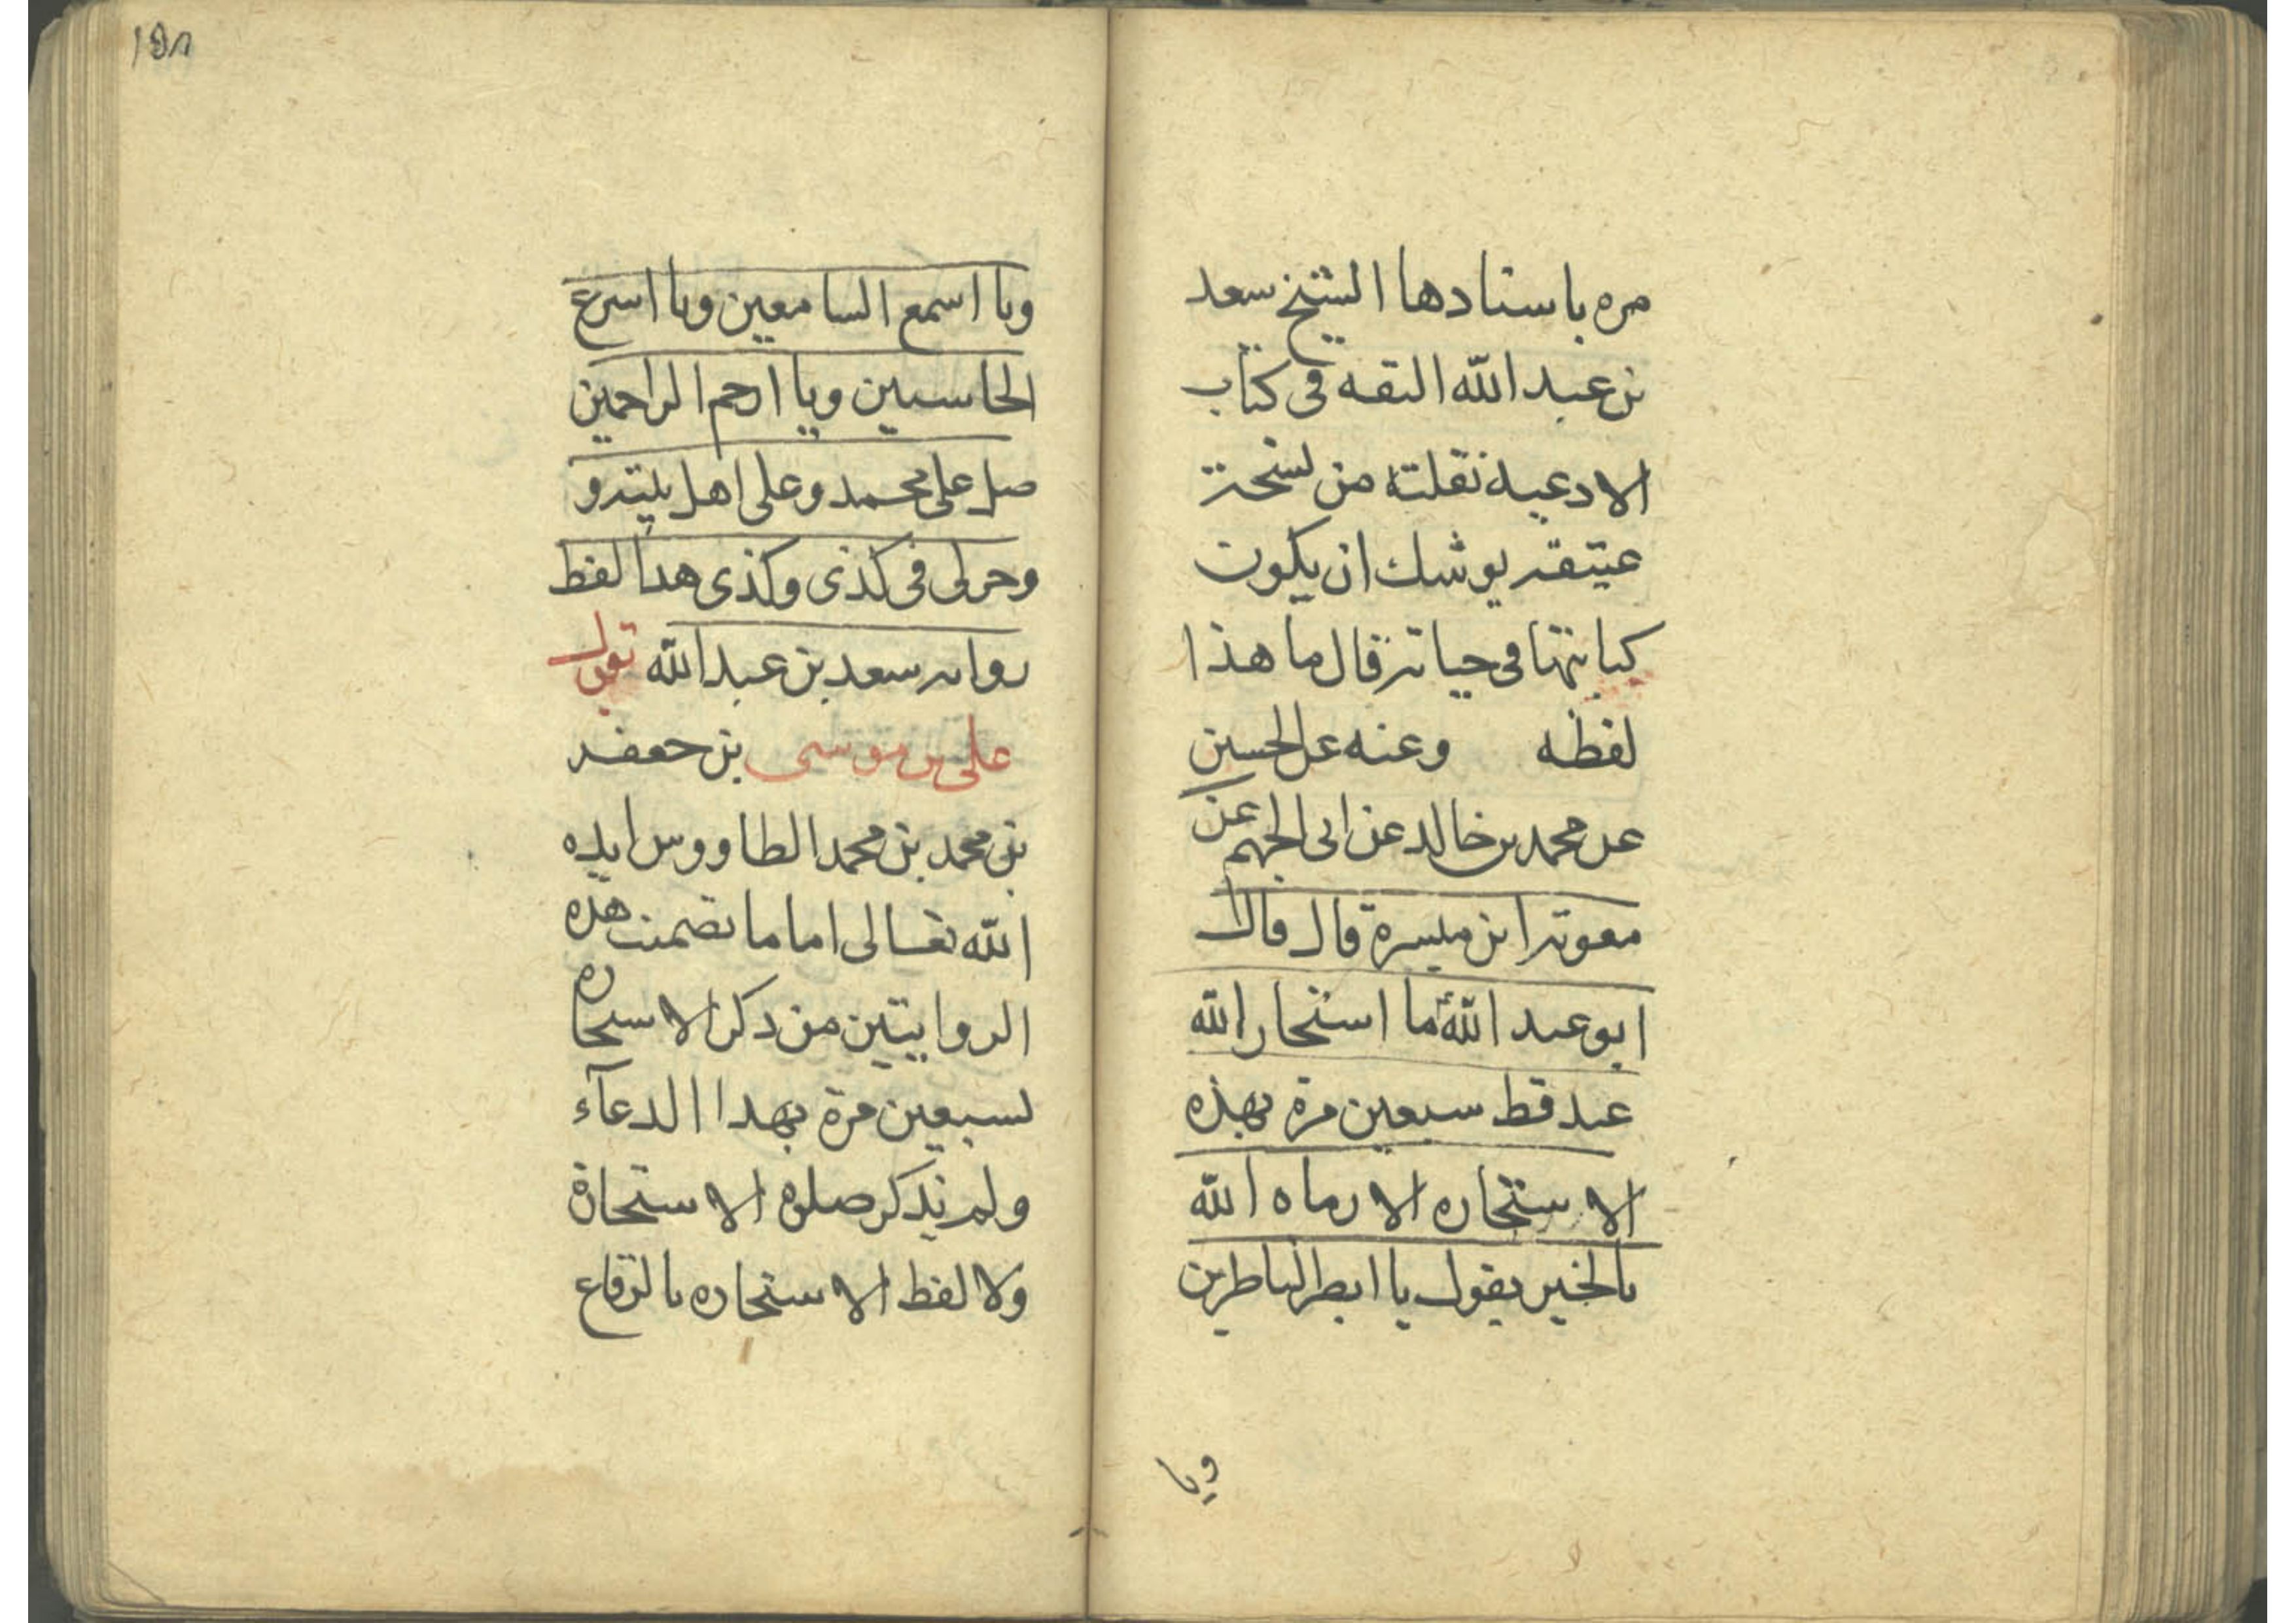 مره باسنادها الشيخ سعد
بن عبد الله الثقه فى كتاب
الادعية نقلته من نسخة
عتيقه يوشك ان يكون
كتابتها فى حياته قال ما هذا
لفظه وعنه عن الحسين
عن محمد بن خالد عن ابى الجهم عن
معوية ابن ميسرة قال قال
ابو عبد الله ما استخار الله
عبد قط سبعين مرة بهذه
الاستخاره الا رماه الله
بالخير يقول يا ابصر الناظرين
ويا
١٥٨
ويا اسمع السامعين ويا اسرع
الحاسبين ويا ارحم الراحمين
صل على محمد وعلى اهل بيته و
وخر لى فى كذى وكذى هذا لفظ
رواية سعد بن عبد الله يقول
على بن موسى بن جعفر
بن محمد بن محمد الطاووس ايده
الله تعالى اما ما تضمنت هذه
الروايتين من ذكر الاستخاره
لسبعين مرة بهذا الدعآء
ولم يذكر صلوة الاستخارة
ولا لفظ الاستخاره بالرقاع